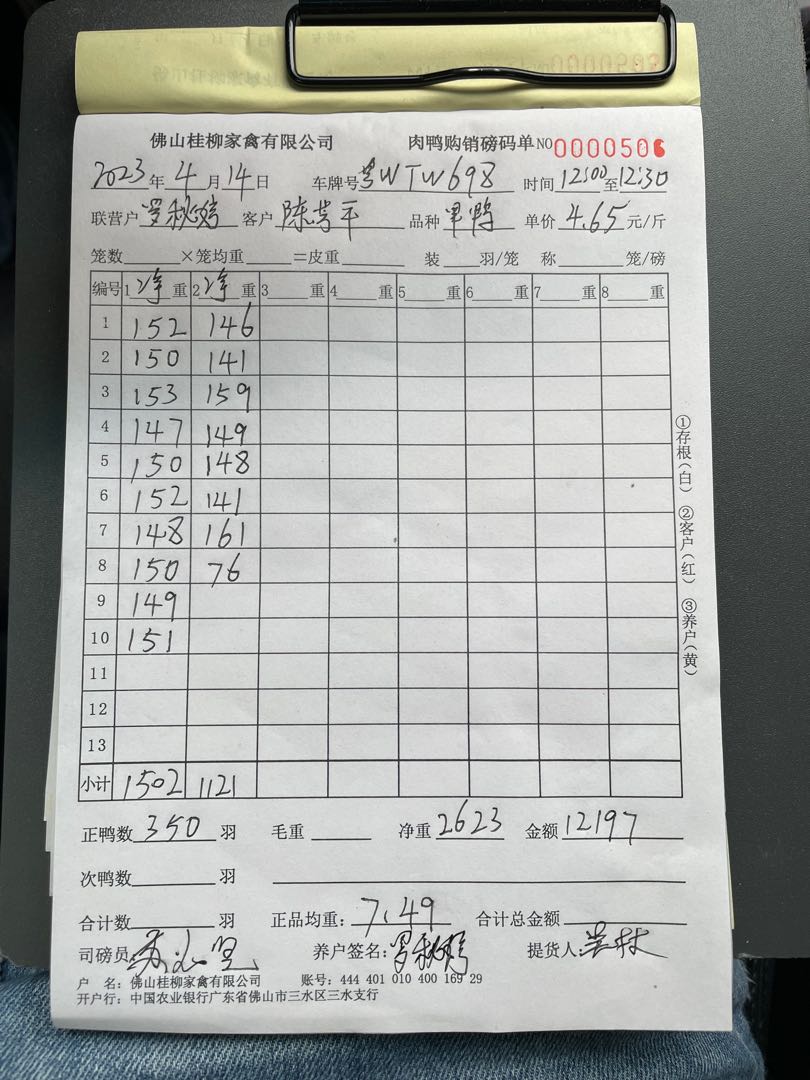 佛山桂柳家禽有限公司 肉鸭购销磅码单 NO 0000506
2023年4月14日 车牌号粤WTW698 时间12:00至12:30
联营户罗秋嫦 客户陈芳平 品种 鸭 单价4.65元/斤
笼数 ×笼均重 =皮重 装 羽/笼 称 笼/磅
编号 1净重 2净重 3 重 4 重 5 重 6 重 7 重 8 重
1 152 146
2 150 141
3 153 159
4 147 149
5 150 148
6 152 141
7 148 161
8 150 76
9 149
10 151
11
12
13
小计 1502 1121
正鸭数350羽 毛重 净重2623 金额12197
次鸭数 羽
合计数 羽 正品均重:7.49 合计总金额
司磅员: 养户签名:罗秋嫦 提货人:
户 名:佛山桂柳家禽有限公司 账号:444 401 010 400 169 29
开户行:中国农业银行广东省佛山市三水区三水支行
①存根(白) ②客户(红) ③养户(黄)